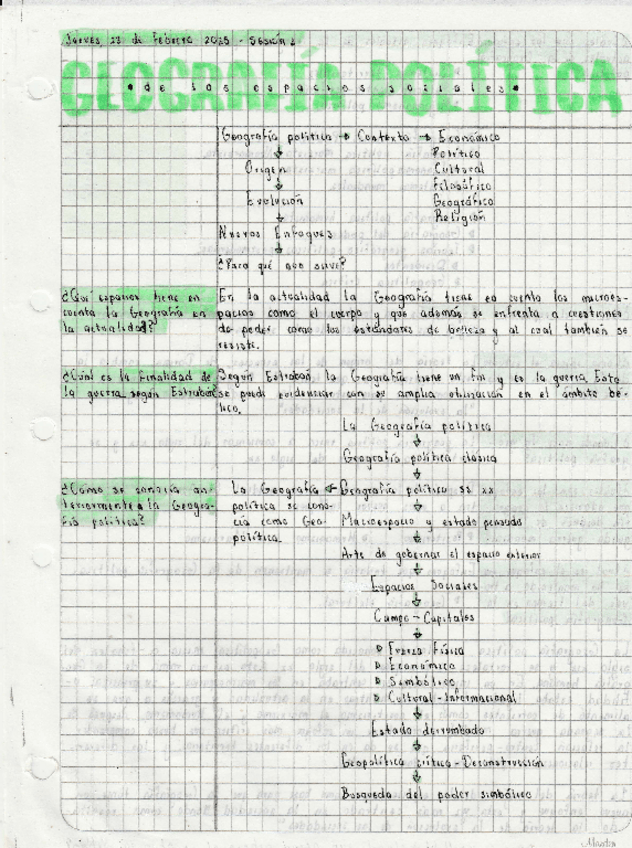 Jueves, 23 de Febrero 2023 - Sesión 2
GEOGRAFÍA POLÍTICA
•de los espacios sociales•
Geografía política → Contexto → Económico
Político
Origen Cultural
Filosófico
Evolución Geográfico
Religión
Nuevos Enfoques
¿Para qué nos sirve?
¿Qué espacios tiene en En la actualidad la Geografía tiene en cuenta los macroes-
cuenta la Geografía en pacios como el cuerpo y que además se enfrenta a cuestiones
la actualidad? de poder como los estándares de belleza y al cual también se
resiste.
¿Cuál es la finalidad de Según Estrabón, la Geografía tiene un fin y es la guerra. Esto
la guerra según Estrabón? se puede evidenciar con su amplia utilización en el ámbito bé-
lico.
La Geografía política
Geografía política clásica
¿Cómo se conocía an- La Geografía ← Geografía política ss xx
teriormente a la Geogra- política se cono-
fía política? cía como Geo- Macroespacio y estado pensado
política.
Arte de gobernar el espacio exterior
Espacios Sociales
Campo - Capitales
Fuerza Física
Económico
Simbólico
Cultural - Informacional
Estado derrumbado
Geopolítica crítica - Deconstrucción
Busqueda del poder simbólico